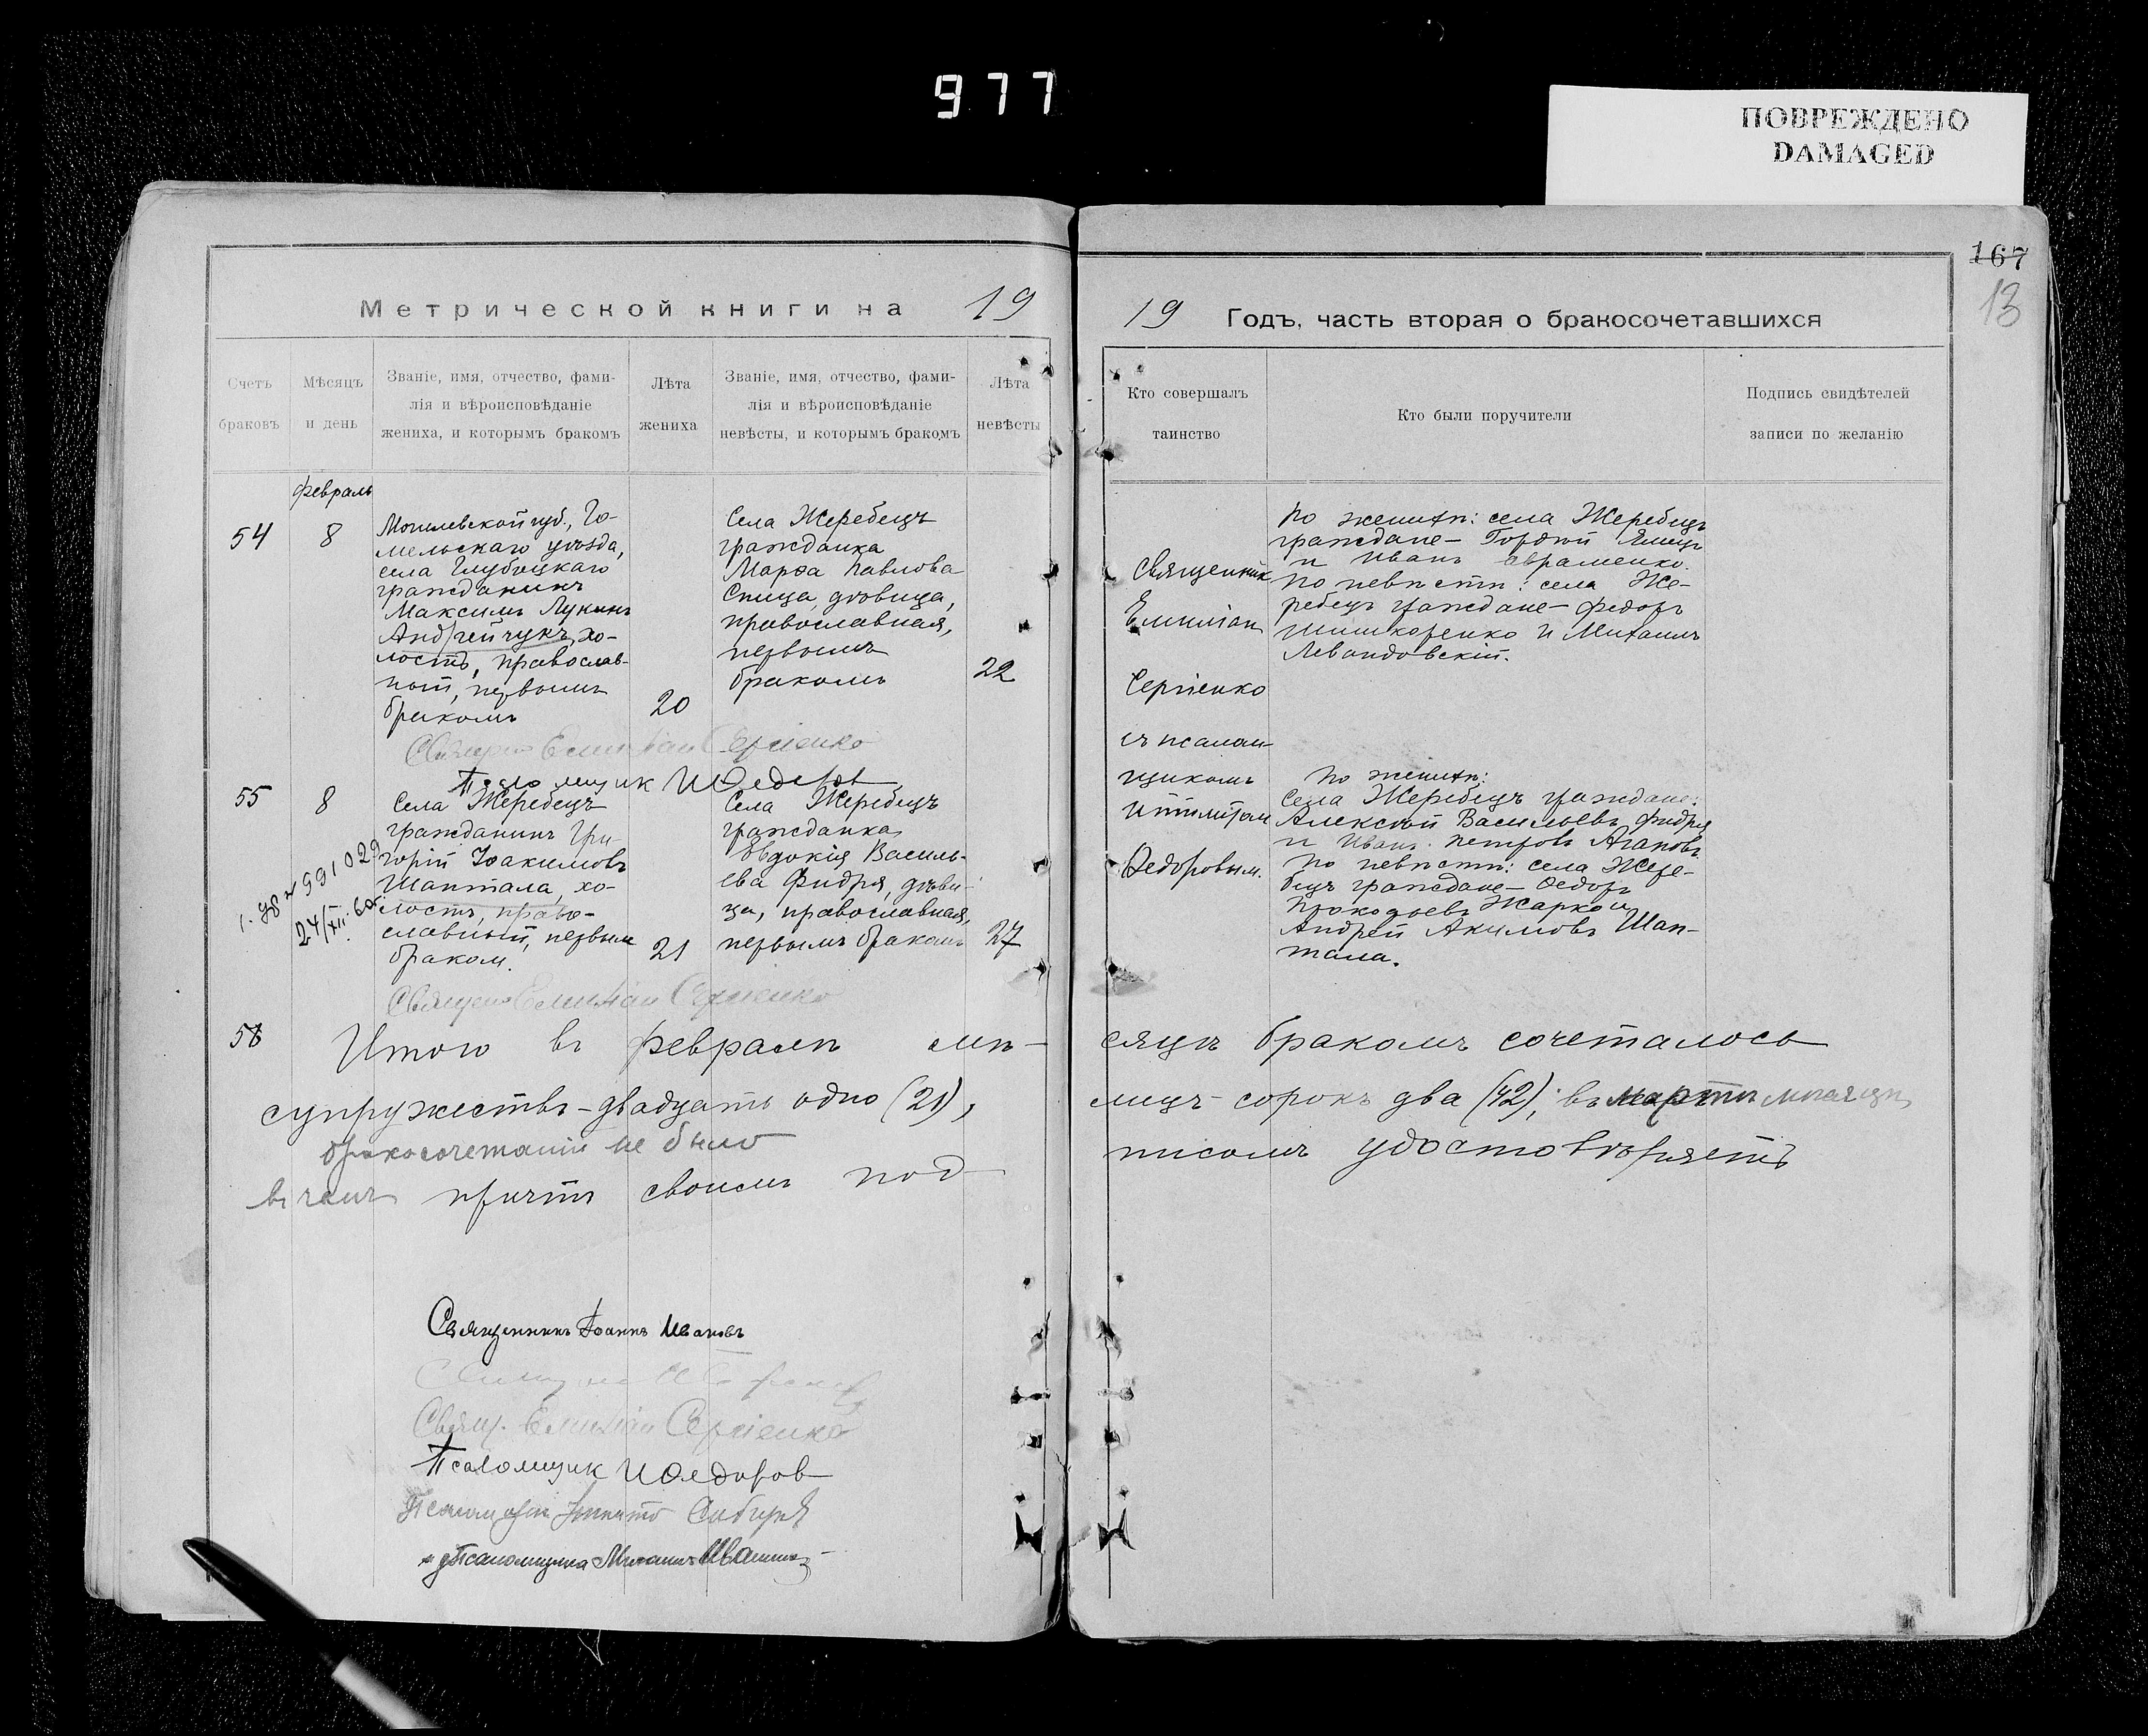 977
ПОВРЕЖДЕНО
DAMAGED
167
13
Метрической книги на 19
19 Годъ, часть вторая о бракосочетавшихся
Счетъ
браковъ
Мѣсяцъ
и день
Званіе, имя, отчество, фами-
лія и вѣроисповѣданіе
жениха, и которымъ бракомъ
Лѣта
жениха
Званіе, имя, отчество, фами-
лія и вѣроисповѣданіе
невѣсты, и которымъ бракомъ
Лѣта
невѣсты
Кто совершалъ
таинство
Кто были поручители
Подпись свидѣтелей
записи по желанію
февраль
54
8
Могилевской губ., Го-
мельскаго уѣзда,
села Глубоцкаго
гражданинъ
Максимъ Лукинъ
Андрейчукъ, хо-
лостъ, православ-
ной, первымъ
бракомъ
20
Села Жеребецъ
гражданка
Марѳа Павлова
Спица, дѣвица,
православная,
первымъ
бракомъ
22
Священник
Емиліан
Сергіенко
съ псалом-
щикомъ
Федоровым.
По женихѣ: села Жеребецъ
граждане – Гордѣй
и Иванъ Авраменко.
По невѣстѣ: села Же-
ребецъ граждане – Федоръ
Шишкоренко и Михаилъ
Левандовскій.
Священ Емиліан Сергіенко
Псаломщик И Федоров
55
8
24/XII. 60г.
Села Жеребецъ
гражданинъ Гри-
горій Іоакимовъ
Шаптала, хо-
лостъ, право-
славный, первым
браком.
21
Села Жеребецъ
гражданка
Евдокія Василь-
ева Фидря, дѣви-
ца, православная,
первымъ бракомъ
27
По женихѣ:
Села Жеребецъ граждане:
Алексѣй Васильевъ Фидря
и Иванъ Петровъ Агаповъ.
По невѣстѣ: села Жере-
бецъ граждане – Федоръ
Прокофьевъ Жарко и
Андрей Акимовъ Шап-
тала.
Священ Емиліан Сергіенко
56
Итого въ февралѣ мѣ-
сяцѣ бракомъ сочеталось
супружествъ – двадцать одно (21),
лицъ – сорокъ два (42); въ мартѣ мѣсяцѣ
бракосочетаній не было
въ чемъ причтъ своимъ под-
писомъ удостовѣряетъ
Священникъ Іоаннъ Ивановъ
Свящ. Емиліан Сергіенко
Псаломщик И Федоров
Псаломщик
Псаломщика Михаилъ